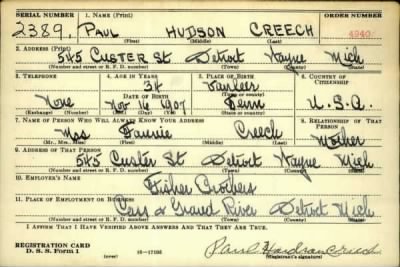 SERIAL NUMBER 1. NAME (Print) ORDER NUMBER
2389 PAUL HUDSON CREECH 4940
(First) (Middle) (Last)
2. ADDRESS (Print)
545 CUSTER ST Detroit Wayne Mich
(Number and street or R. F. D. number) (Town) (County) (State)
3. TELEPHONE 4. AGE IN YEARS 5. PLACE OF BIRTH 6. COUNTRY OF CITIZENSHIP
None Nov 16 1907 Tenn U.S.A.
DATE OF BIRTH
(Exchange) (Number) (Mo.) (Day) (Yr.) (State or country)
7. NAME OF PERSON WHO WILL ALWAYS KNOW YOUR ADDRESS 8. RELATIONSHIP OF THAT PERSON
Mrs Fannie Creech Mother
(Mr., Mrs., Miss) (First) (Middle) (Last)
9. ADDRESS OF THAT PERSON
545 Custer St Detroit Wayne Mich
(Number and street or R. F. D. number) (Town) (County) (State)
10. EMPLOYER'S NAME
Fisher Brothers
11. PLACE OF EMPLOYMENT OR BUSINESS
Cass & Grand River Detroit Mich
(Number and street or R. F. D. number) (Town) (County) (State)
I AFFIRM THAT I HAVE VERIFIED ABOVE ANSWERS AND THAT THEY ARE TRUE.
REGISTRATION CARD
D. S. S. Form 1 (over) 16-17105 Paul Creech
(Registrant's signature)